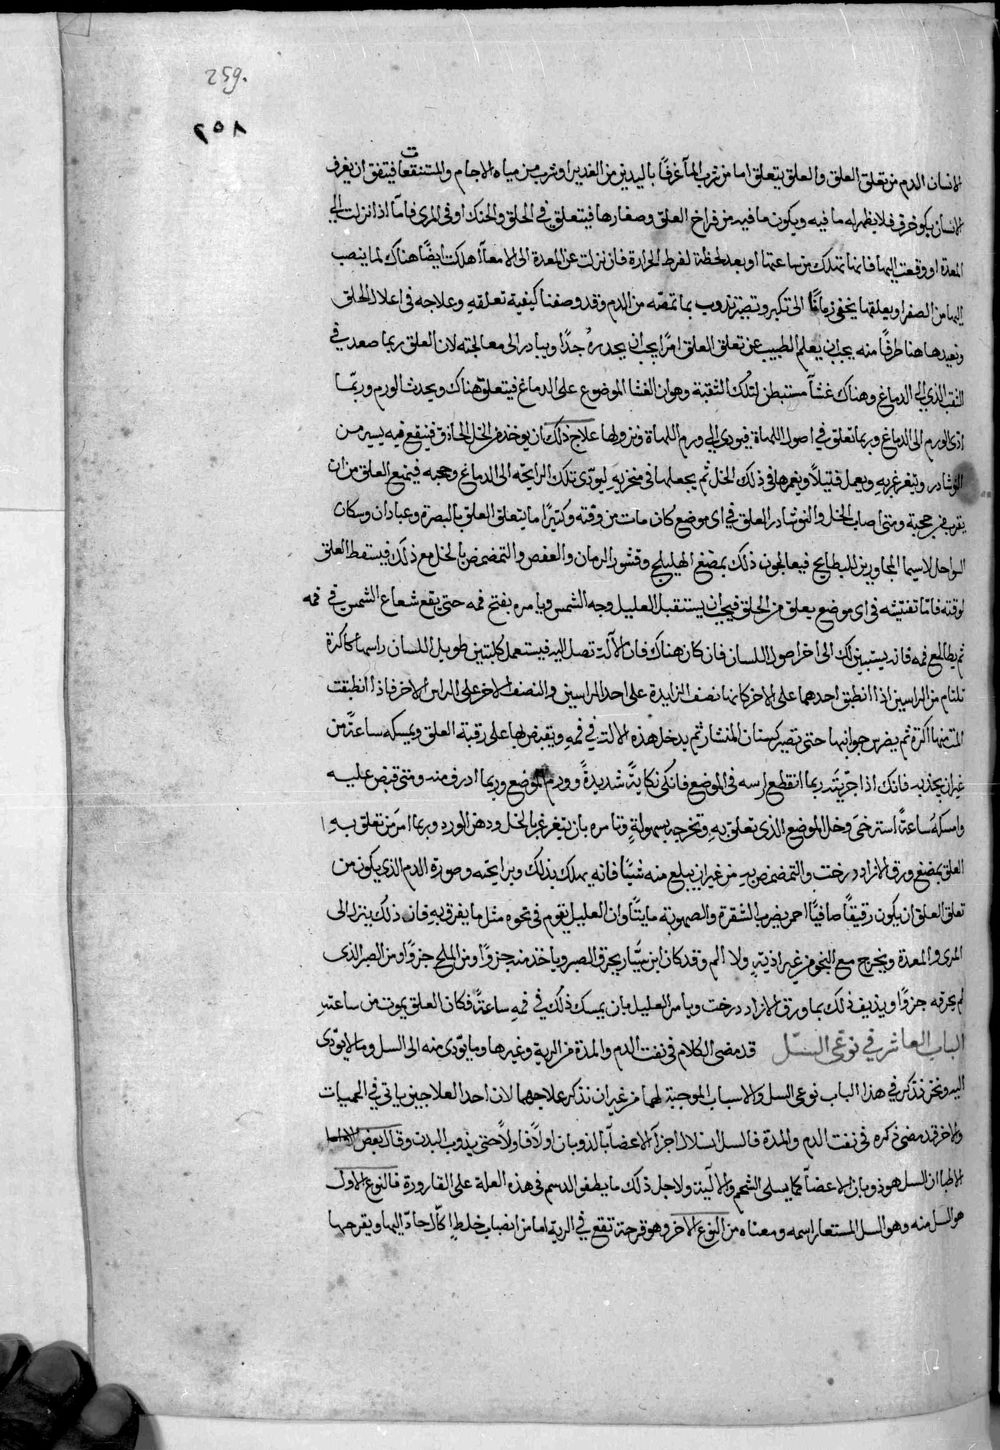 259.
٢٥٨
الانسان الدم من تعلق العلق والعلق يتعلق اما من شرب المآ غرفًا باليدين من الغدير او شرب من مياه الاجام والمتنقعات فيتفق ان يغرف
الانسان بكوز خزف فلا يظهر له ما فيه ويكون ما فيه من فراخ العلق وصغارها فيتعلق في الحلق والحنك او في المرى فامّا اذا نزلت الي
المعدة او وقعت اليها فانها تهلك من ساعتها او بعد لحظة لفرط الحرارة فان نزلت عن المعدة الى الامعآ اهلكت ايضًا هناك لما ينصب
اليها من الصفرا وبعلقها يخفى زمانًا الى تكبر وتصير تذوب بما تمصّه من الدم وقد وصفنا كيفية تعلقه وعلاجه في اعلال الحلق
ونعيدها هنا طرفًا منه يجب ان يعلم الطبيب عن تعلق العلق امرًا يجب ان يحدره جدًا ويبادر الى معالجته لان العلق ربما صعد في
الثقب الذي الى الدماغ وهناك غشآ مستبطن لتلك الثقبة وهو ان الغشا الموضوع على الدماغ فيتعلق هناك ويحدث الورم وربّما
ادى الورم الى الدماغ وربما تعلق في اصول اللهاة فيودى الى ورم اللهاة ونزولها علاج ذلك ان يوخذ من الخل الحاذق فينقع فيه يسير من
النوشادر ويتغرغر به ويعمل فتيلًا ويغمرها في ذلك الخل ثم يجعلها في منخريه ليودّى تلك الرايحة الى الدماغ وحجبه فيمنع العلق من ان
يقرب من حجبة ومتى اصاب الخل والنوشادر العلق في اى موضع كان مات من وقته وكثيرًا ما تعلق العلق بالبصرة وعبادان وسكان
السواحل لاسيما المجاورين للبطايح فيعالجون ذلك بمضغ الهليلج وقشور الرمان والعفص والتمضمض بالخل مع ذلك فيسقط العلق
لوقته فامّا تفتيشه في اى موضع يعلق من الحلق فيجب ان يستقبل العليل وجه الشمس ويامره بفتح فمه حتى يقع شعاع الشمس في فمه
ثم يطالع فمه فانه يستبين لك الى اخر اصول اللسان فان كان هناك فان الآلة تصل اليه فيستعمل كلبتين طويل اللسان راسها كاكرة
تلتام من الراسين اذا انطبق احدهما على الاخر كانها نصف الزايدة على احد الراسين والنصف الاخر على الراس الاخر فاذا انطبقت
التامنها اكرة ثم يضرس جوانبها حتى تصير كسنان المنشار ثم يدخل هذه الالة في فمه ويقبض بها على رقبة العلق ويمسكه ساعةً من
غير ان يجذبه فانك اذا جريته ربما انقطع راسه في الموضع فانكى نكايةً شديدةً وورم الموضع وربما ادرف منه ومتى قبض عليه
وامسكه ساعةً استرخى وخل الموضع الذى تعلق به وتخرجه بسهولةٍ وتامره بان يتغرغر بالخل ودهن الورد وربما امر من تعلق به
العلق بمضغ ورق الازاد درخت والتمضمض به من غير ان يبلع منه شيئًا فانه يهلك بذلك وبرايحته وصورة الدم الذى يكون من
تعلق العلق ان يكون رقيقًا صافيًا احمر يضرب الشقرة والصهوبة مايتًا وان العليل يقوم في نحوه مثل ما يفرق به فان ذلك ينزل الى
المرى والمعدة ويخرج مع النجو من غير اذيتهٍ ولا الم وقد كان ابن سيّار يحرق الصبر وياخذ منه جزوًا ومن الملح جزوًا ومن الصبر الذى
لم يحرقه جزوًا ويذيف ذلك بماورق الازاد درخت ويامر العليل بان يمسك ذلك في فمه ساعةً فكان العلق يموت من ساعته
الباب العاشر في نوعى السلّ قد مضى الكلام في نفث الدم والمدة من الرية وغيرها وما يودّى منه الى السل وما لا يودّى
اليه ونحن نذكر في هذا الباب نوعى السل والاسباب الموجبة لهما من غير ان نذكر علاجهما لان احد العلاجين ياتى في الحميات
والاخر قد مضى ذكره في نفث الدم والمدة فالسل انسلال اجزآ الاعضآ بالذوبان اولًا فاولًا حتى يذوب البدن وقال بعض
الاطبا ان السل هو ذوبان الاعضآ كما يسلى الشحم والالية ولاجل ذلك ما يطفو الدسم في هذه العلة على القارورة فالنوع الاول
هو السل منه وهو السل المستعار اسمه ومعناه من النوع الاخر وهو قرحة تقع في الرية اما من انصباب خلطٍ اكّال حادّ اليها ويقرحها